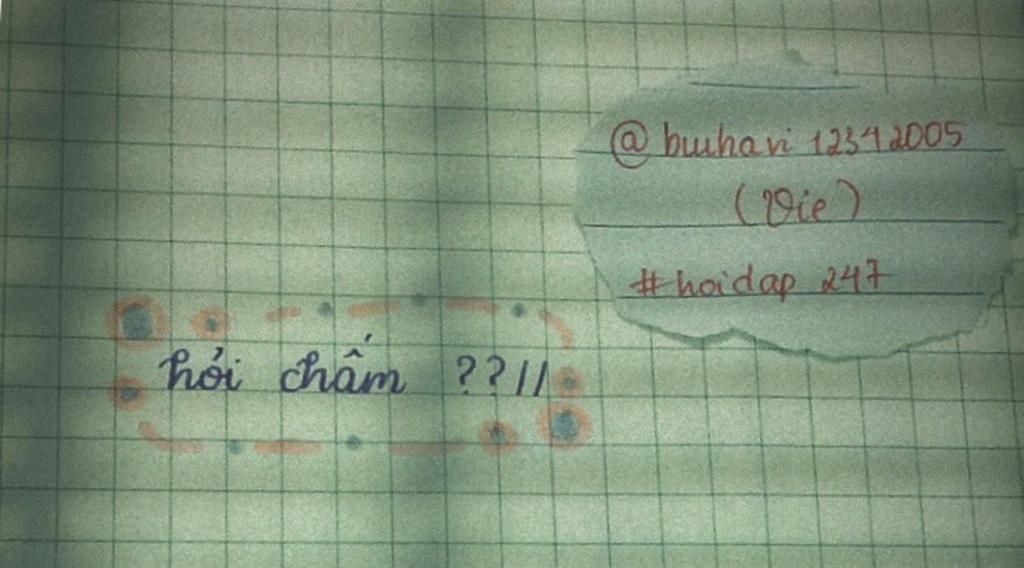 @buihavi12342005
(Vie)
#hoidap 247
hỏi chấm ??//